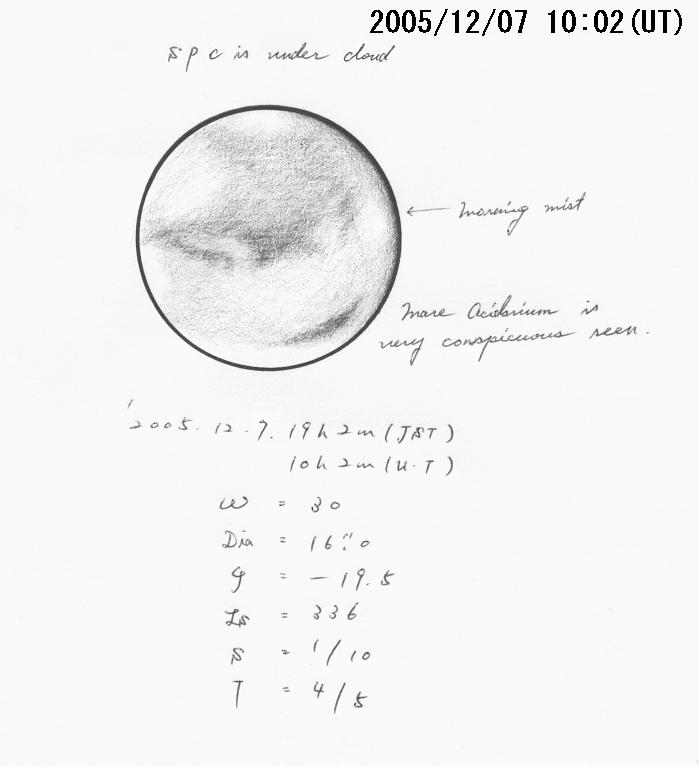 2005/12/07 10:02(UT)
S P C is under cloud
morning mist
Mare Acidarium is
very conspicuous seen.
'2005. 12. 7. 19h 2m (JST)
10h 2m (U.T)
ω = 30
Dia = 16".0
φ = -19.5
Ls = 336
S = 1/10
T = 4/5